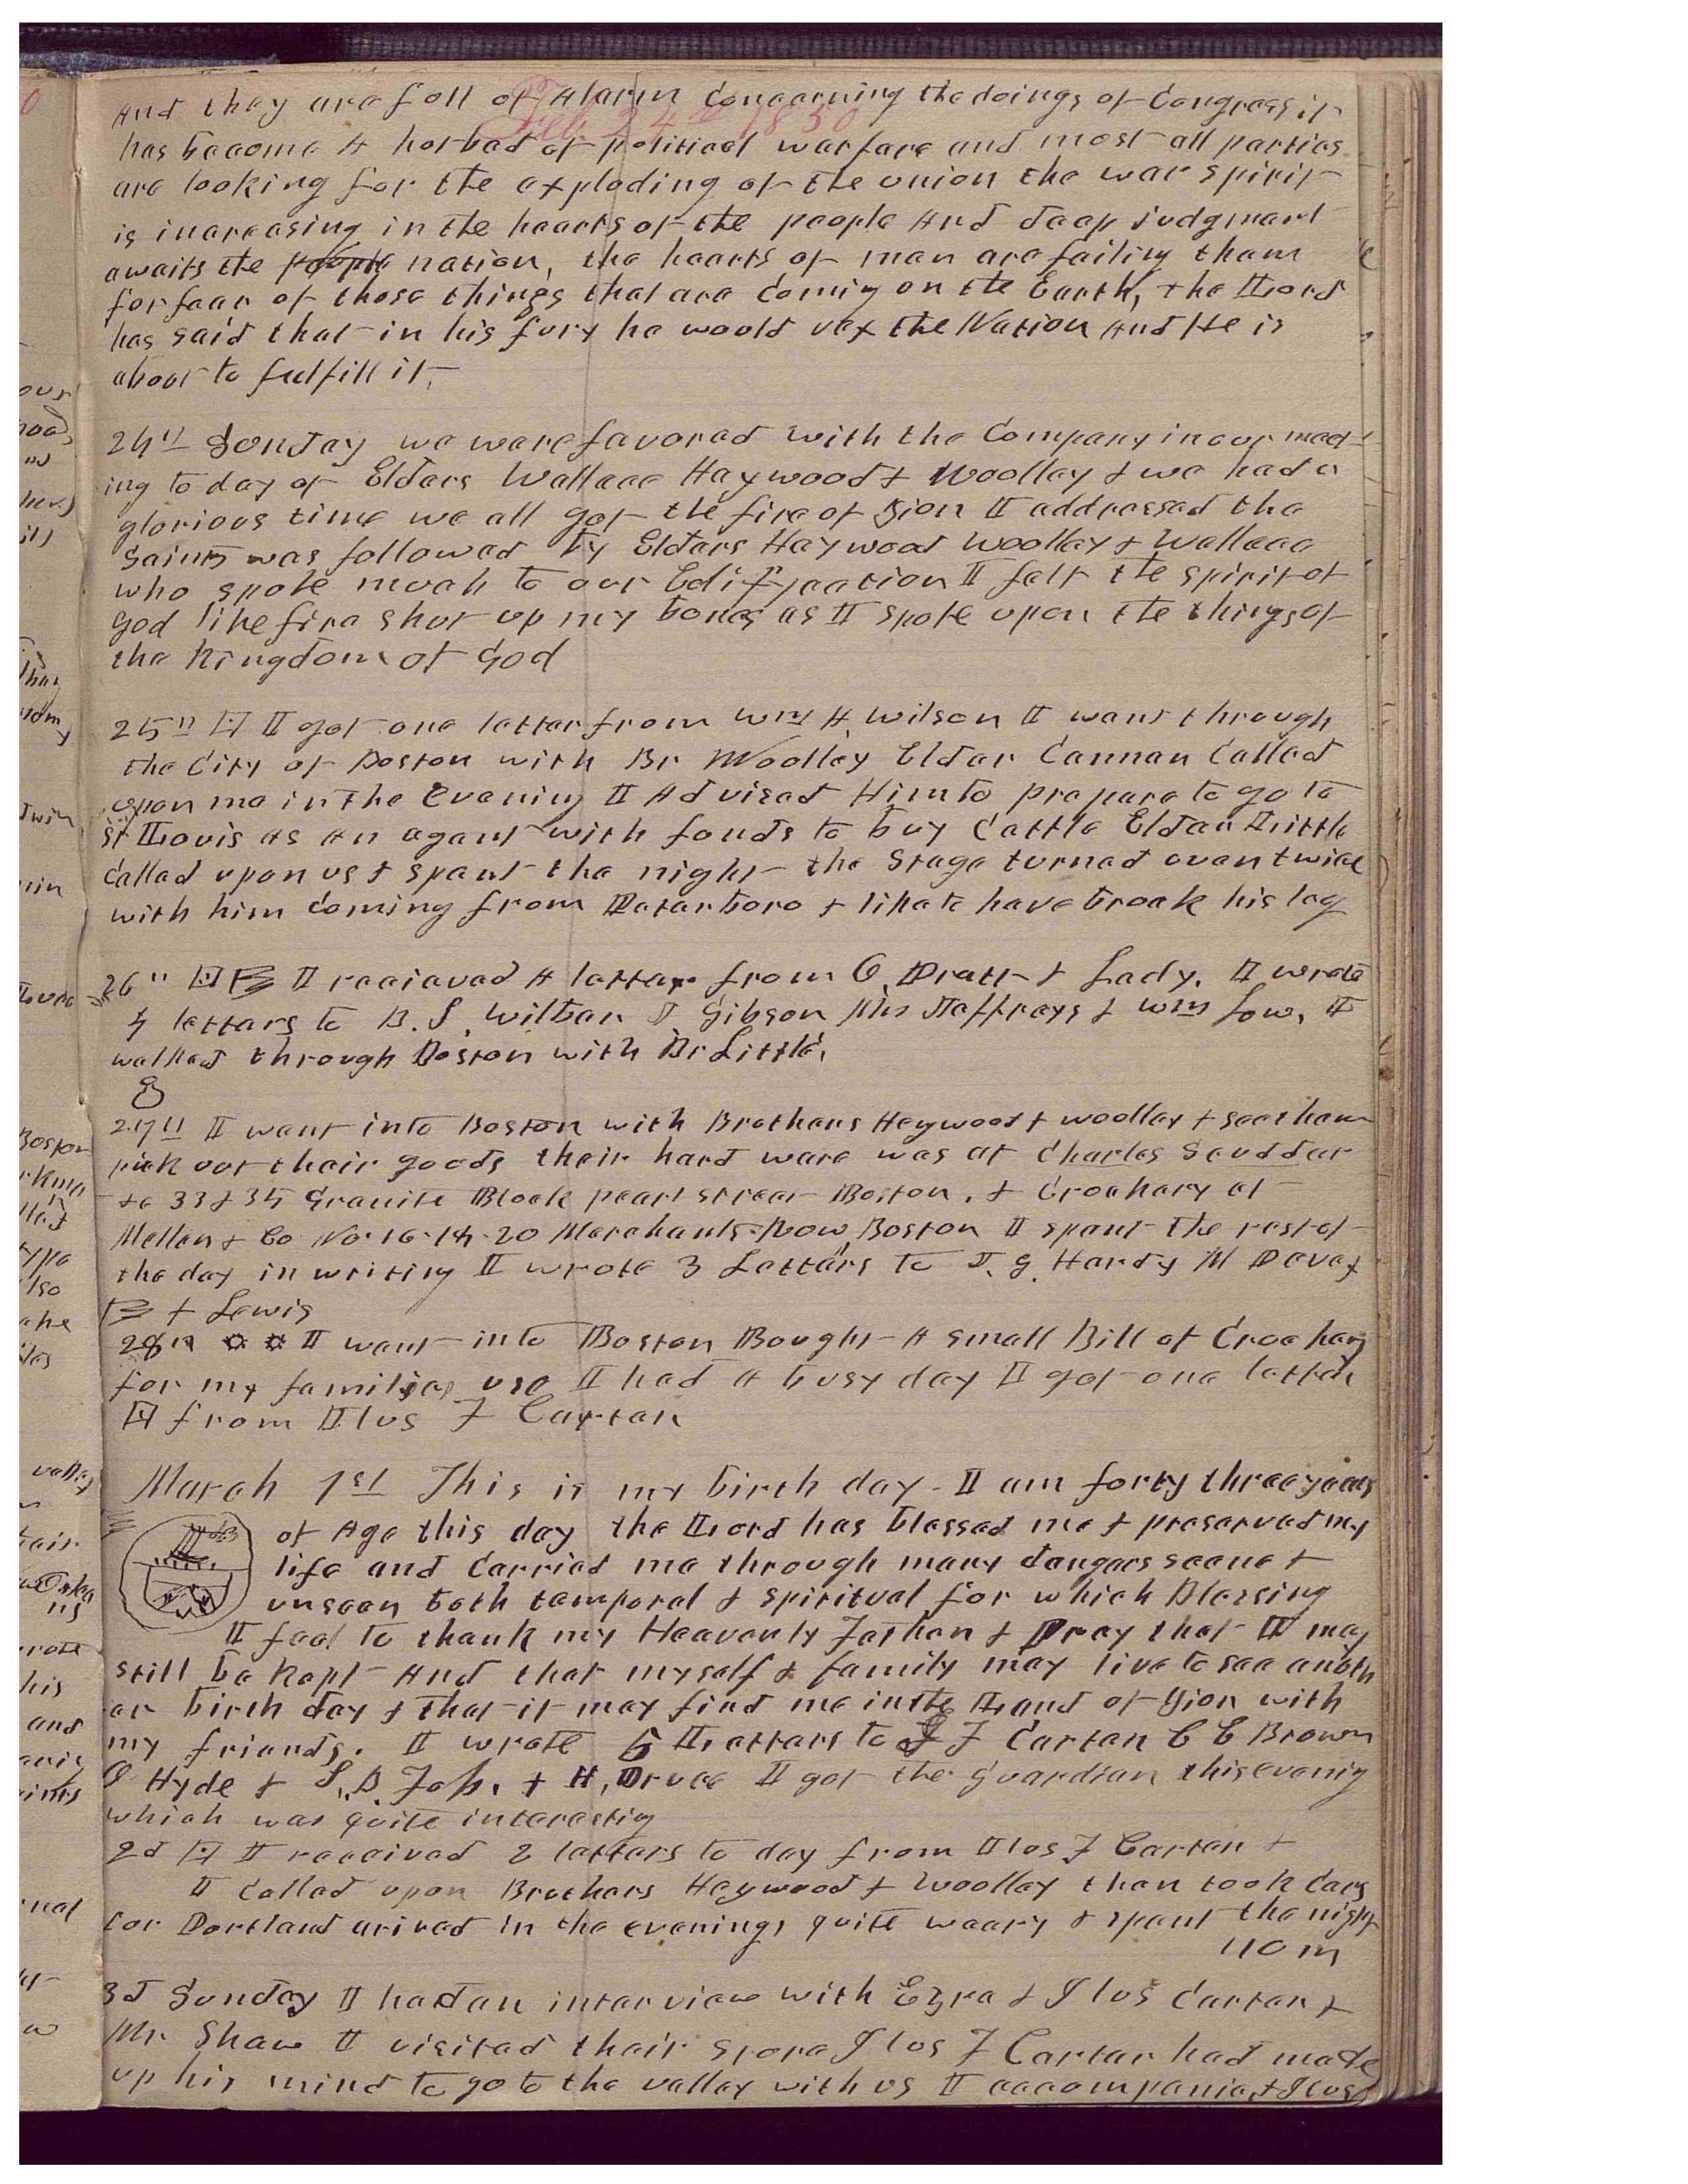 Feb 24th 1850
And they are full of Alarm Concerning the doings of Congress it
has become A hotbed of political warfare and most all parties
are looking for the exploding of the union the war spirit
is increasing in the hearts of the people And deep judgment
awaits the people nation, the hearts of men are failing them
for fear of those things that are Coming on the Earth, the Lord
has said that in his fury he would vex the Nation And He is
about to fulfill it,
24th Sunday we were favored with the Company in our meet-
ing to day of Elders Wallace Haywood & Woolley & we had a
glorious time we all got the fire of Zion I addressed the
Saints was followed by Elders Haywood Woolley & Wallace
who spoke much to our Edifycation I felt the spirit of
God like fire shut up my bones as I spoke upon the things of
the Kingdom of God
25th I got one letter from Wm H. Wilson I went through
the City of Boston with Br Woolley Elder Cannan Called
upon me in the Evening I Advised Him to prepare to go to
St Louis as an agent with funds to buy Cattle Elder Little
Called upon us & spent the night the Stage turned over twice
with him Coming from Peterboro & like to have broak his leg
26th I receieved A letter from O. Pratt & Lady. I wrote
4 letters to B. S. Wilber J Gibson Mrs Jaffrays & Wm Low, I
walked through Boston with Br Little,
27th I went into Boston with Brothers Heywood & Woolley & see them
pick out their goods their hard ware was at Charles Scudder
& Co 33 & 35 Granite Block pearl street Boston. & Crockery at
Mellen & Co No. 16. 18. 20 Merchants Row, Boston I spent the rest of
the day in writing I wrote 3 Letters to J. G. Hardy M Davey
& Lewis
28th I went into Boston Bought A small Bill of Crockery
for my families use I had A busy day I got one letter
from Ilus F Carter
March 1st This is my birth day. I am forty three years
of Age this day the Lord has blessed me & preserved my
life and Carried me through many dangers seene &
unseen both temporal & spiritual for which Blessing
I feel to thank my Heavenly Father & Pray that I may
still be kept And that myself & family may live to see anoth
er birth day & that it may find me in the Land of Zion with
my friends. I wrote 5 Letters to I F Carter C C Brown
O Hyde & S. B. Fofs. & H. Druce I got the Guardian this evenig
which was quite interesting
2d I received 2 letters to day from Ilus F Carter &
I Called upon Brothers Haywood & Woolley then took Cars
for Portland arived in the evening, quite weary & spent the night
110 m
3d Sunday I had an interview with Ezra & Ilus Carter &
Mr Shaw I visited their store Ilus F Carter had made
up his mind to go to the valley with us I accompanied Ilus